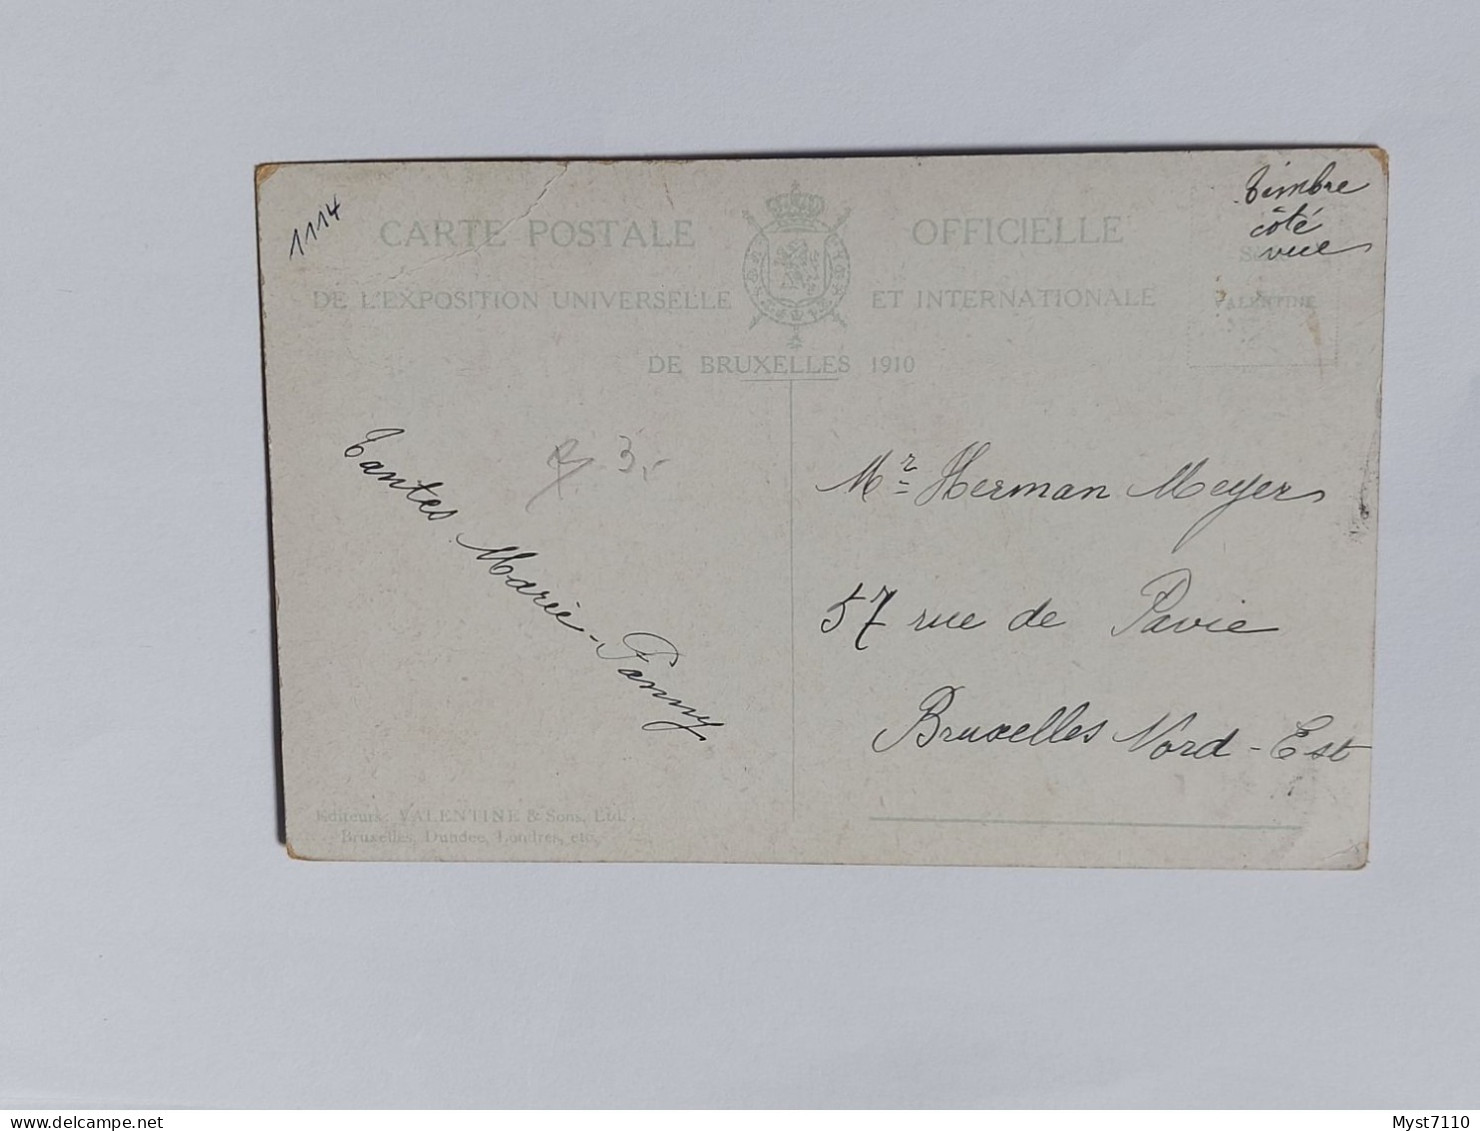 1114
timbre
côté
vue
CARTE POSTALE OFFICIELLE
DE L'EXPOSITION UNIVERSELLE ET INTERNATIONALE
DE BRUXELLES 1910
VALENTINE
Tantes Marie-Fanny
Mr Herman Meyers
57 rue de Pavie
Bruxelles Nord-Est
Editeurs: VALENTINE & Sons, Ltd.
Bruxelles, Dundee, Londres, etc.
delcampe.net
Myst7110